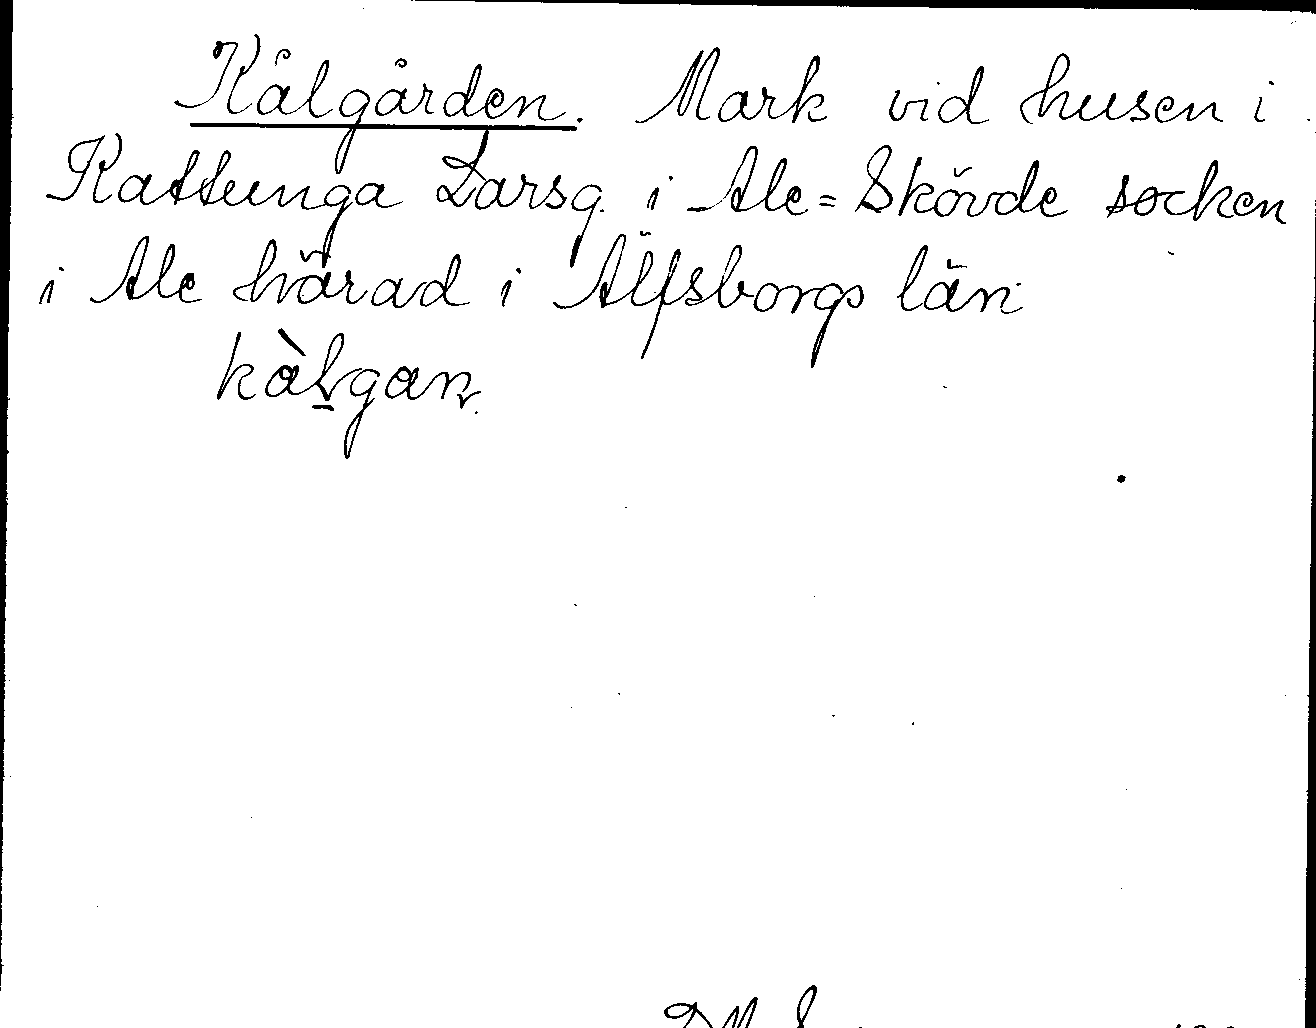 Kålgården. Mark vid husen i
Kattunga Larsg. i Ale=Skövde socken
i Ale härad i Älfsborgs län